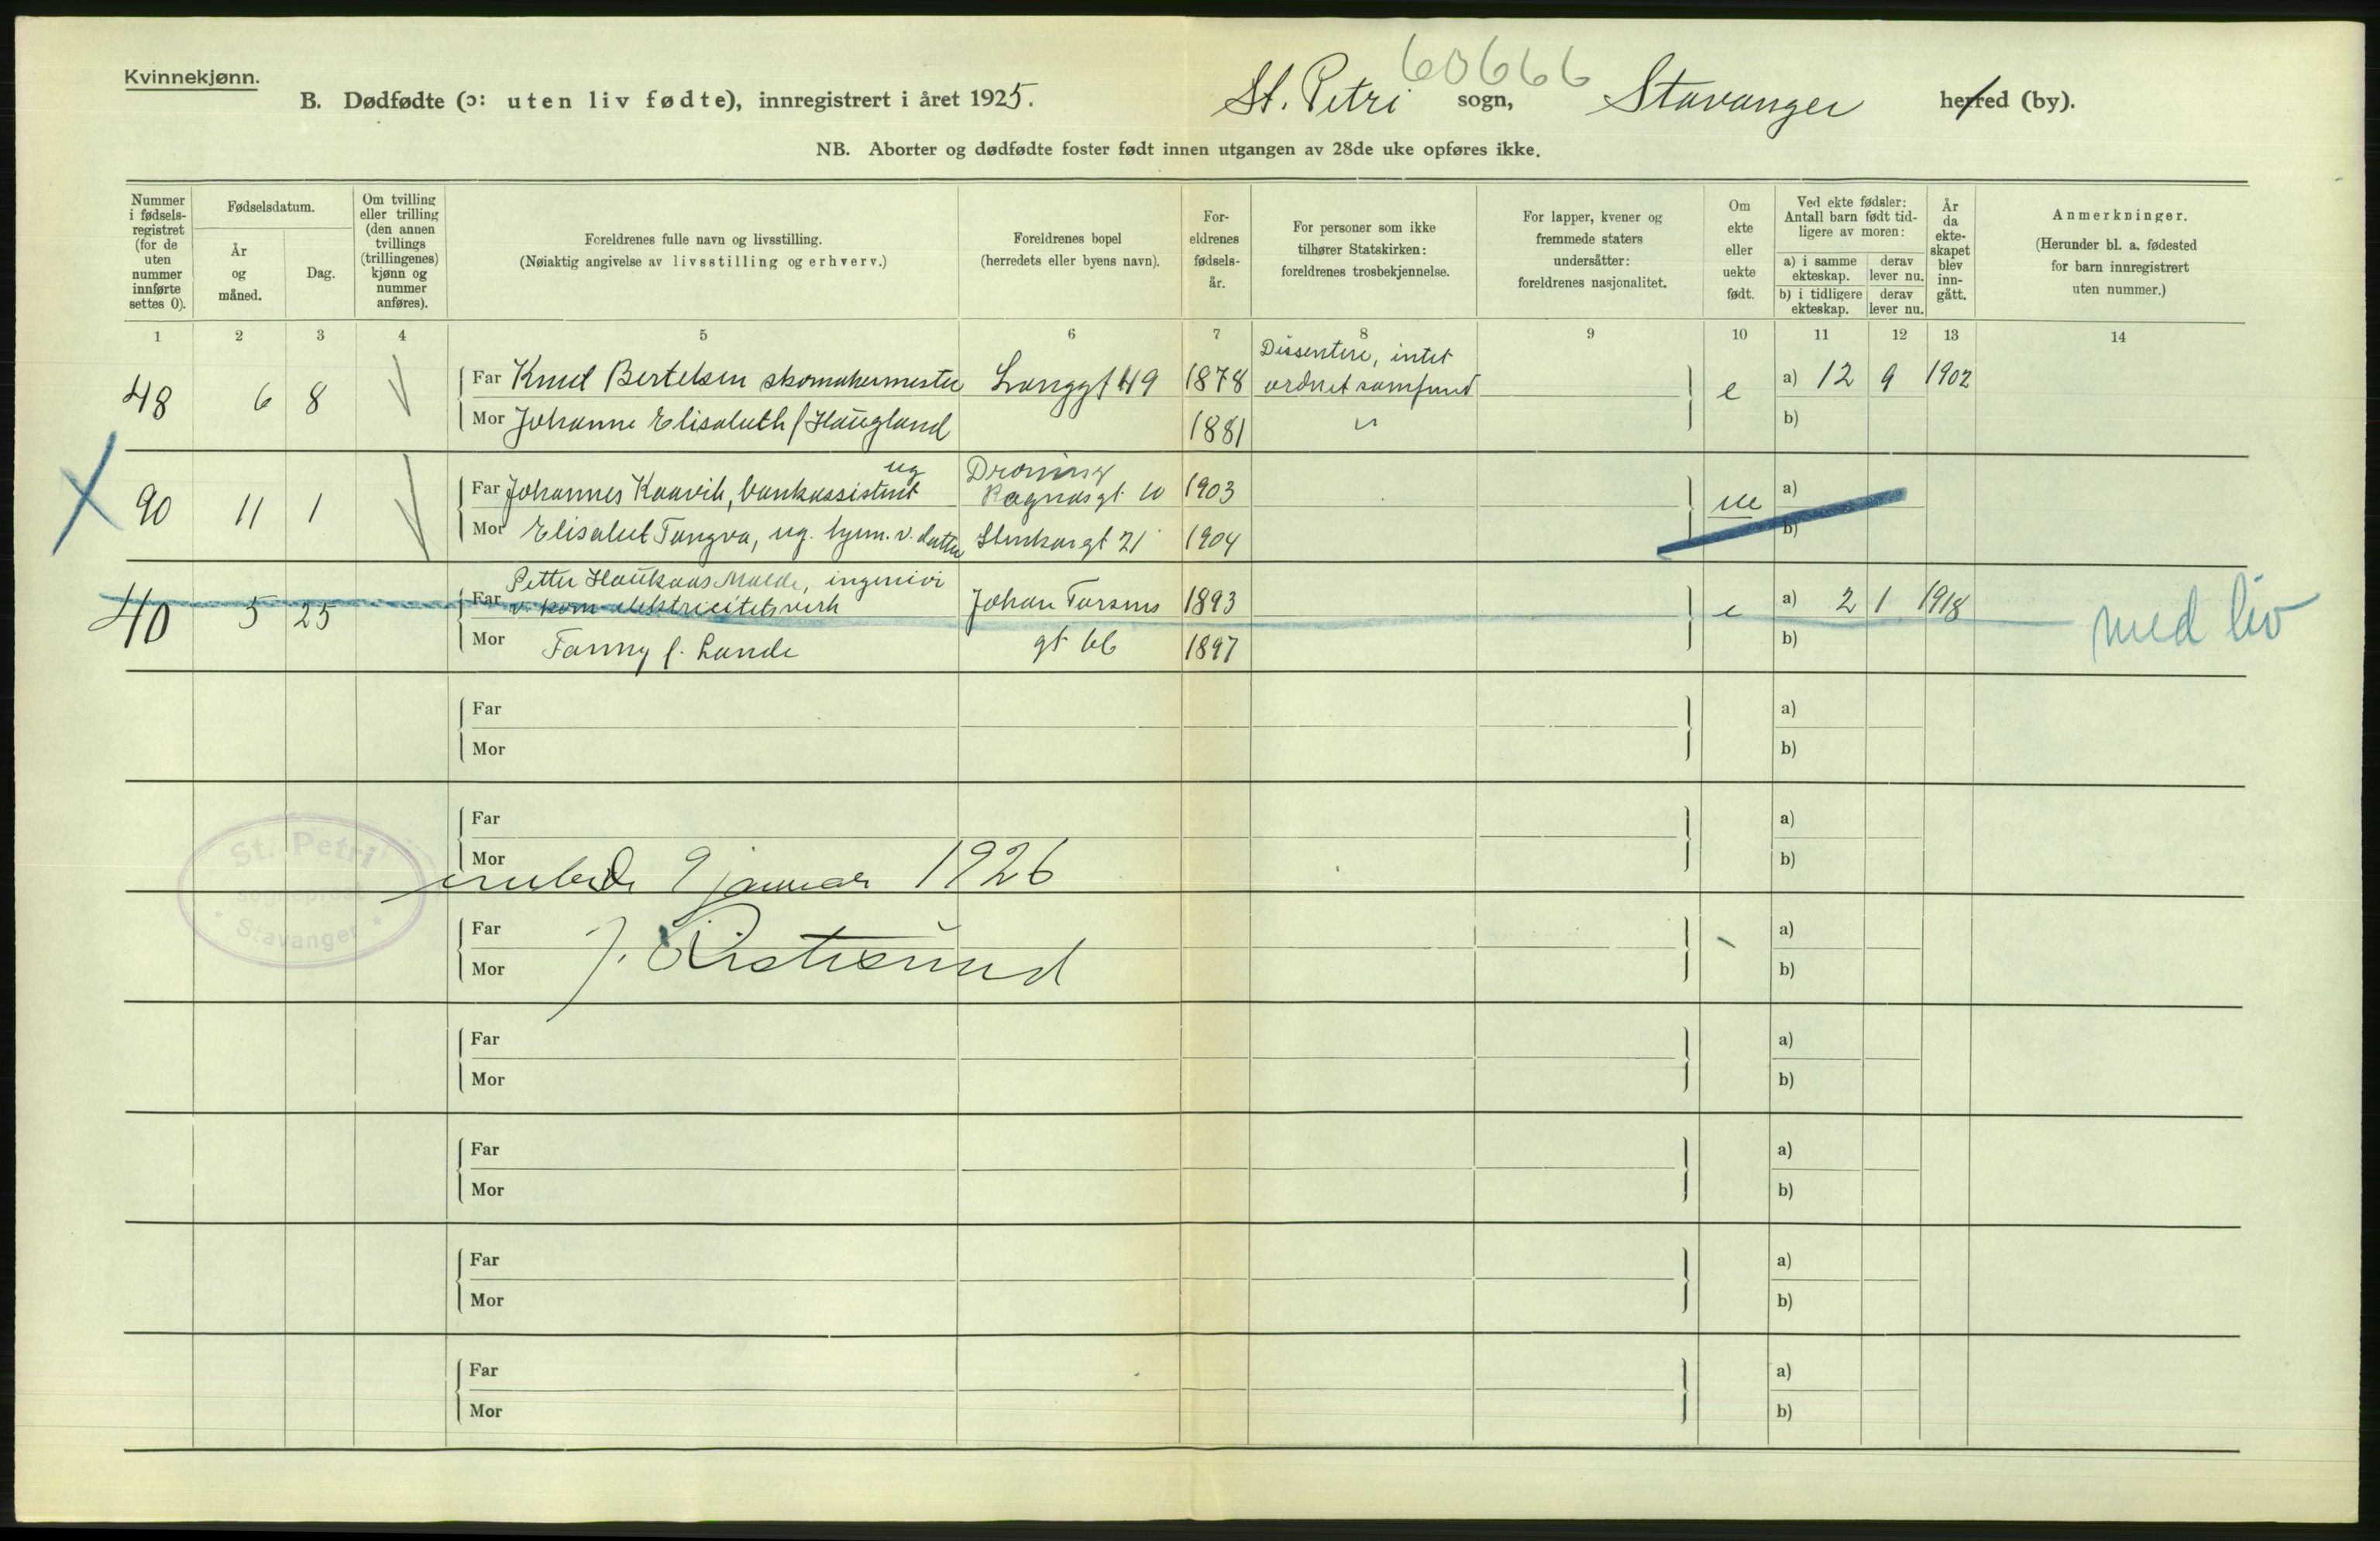 60666
Kvinnekjønn.
B. Dødfødte (ɔ: uten liv fødte), innregistrert i året 1925. St. Petri sogn, Stavanger herred (by).
NB. Aborter og dødfødte foster født innen utgangen av 28de uke opføres ikke.
Nummer i fødselsregistret (for de uten nummer innførte settes 0).
Fødselsdatum.
År og måned.
Dag.
Om tvilling eller trilling (den annen tvillings (trillingenes) kjønn og nummer anføres).
Foreldrenes fulle navn og livsstilling.
(Nøiaktig angivelse av livsstilling og erhverv.)
Foreldrenes bopel
(herredets eller byens navn).
Foreldrenes fødselsår.
For personer som ikke tilhører Statskirken: foreldrenes trosbekjennelse.
For lapper, kvener og fremmede staters undersåtter: foreldrenes nasjonalitet.
Om ekte eller uekte født.
Ved ekte fødsler: Antall barn født tidligere av moren:
a) i samme ekteskap. derav lever nu.
b) i tidligere ekteskap. derav lever nu.
År da ekteskapet blev inngått.
Anmerkninger.
(Herunder bl. a. fødested for barn innregistrert uten nummer.)
1 2 3 4 5 6 7 8 9 10 11 12 13 14
Dissentere, intet
48 6 8 Far Knut Bertelsen skomakermester Langgt 49 1878 ordnet samfund e a) 12 9 1902
Mor Johanne Elisabeth f. Haugland 1881 " b)
ug Dronning
90 11 1 Far Johannes Kaavik, bankassistent Ragnas gt 10 1903 ue a)
Mor Elisabet Tungva, ug. hjem. v. datter Stenkargt 21 1904 b)
Petter Haukaas Malde, ingeniør
40 5 25 Far v. kom. elektricitetsverk Johan Torsens 1893 e a) 2 1 1918 med liv
Mor Fanny f. Lunde gt 66 1897 b)
Far a)
Mor b)
Far a)
Mor b)
9 januar 1926
St. Petri
sogneprest
Stavanger
Far a)
Mor b)
Far a)
Mor b)
Far a)
Mor b)
Far a)
Mor b)
Far a)
Mor b)